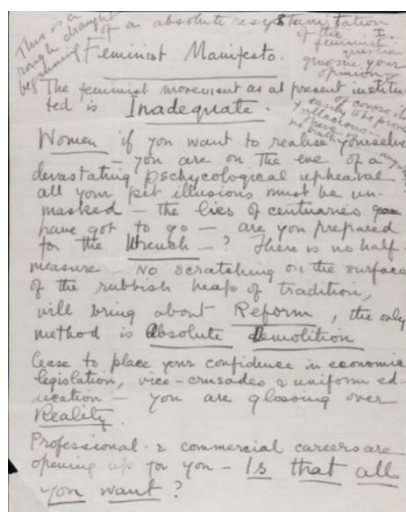 This is a rough draught beginning
of an absolute resubstantiation
of the feminist question
give me your opinion
of course it's easily to be proved
fallacious —
Feminist Manifesto.
The feminist movement as at present institu-
ted is Inadequate.
Women if you want to realise yourselves
— you are on the eve of a
devastating pschycological upheaval —
all your pet illusions must be un-
masked — the lies of centuaries
have got to go — are you prepared
for the Wrench — ? There is no half-
measure — No scratching on the surface
of the rubbish heap of tradition,
will bring about Reform, the only
method is Absolute Demolition
Cease to place your confidence in economic
legislation, vice-crusades & uniform ed-
ucation — you are glossing over
Reality.
Professional & commercial careers are
opening up for you — Is that all
you want?